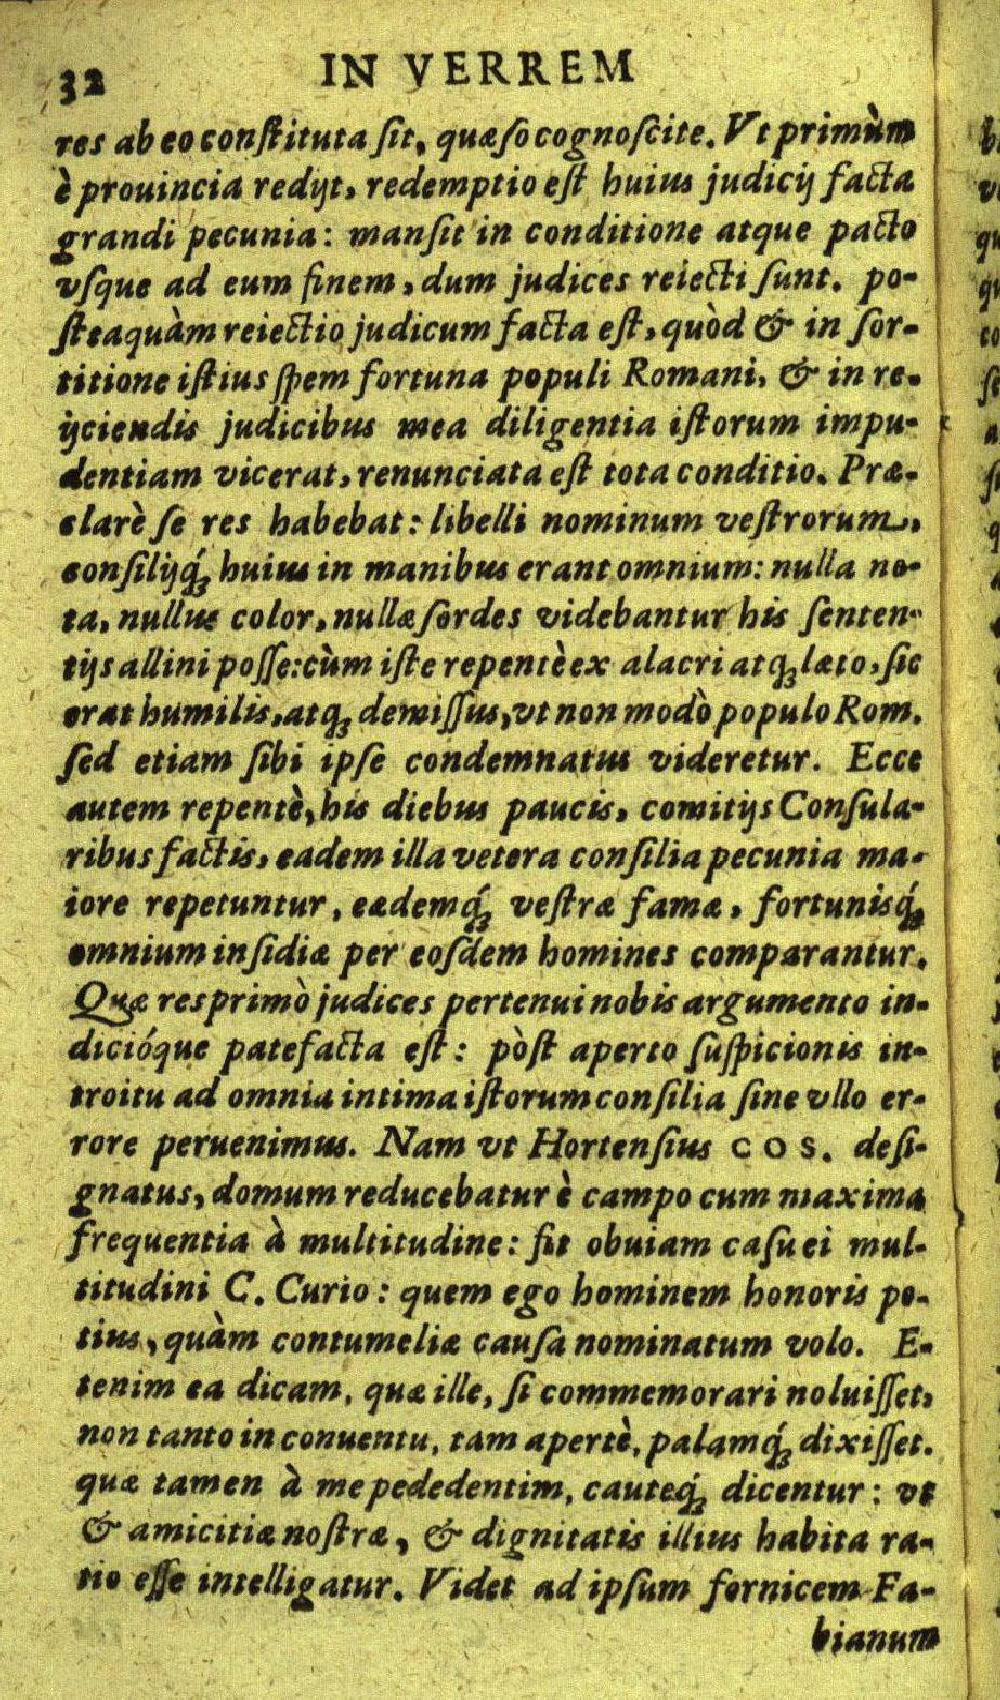 32 IN VERREM
res ab eo constituta ſit, quæſo cognoſcite. Vt primùm
è prouincia redijt, redemptio eſt huius judicij facta
grandi pecunia: manſit in conditione atque pacto
vſque ad eum finem, dum judices reiecti ſunt. po-
ſteaquàm reiectio judicum facta eſt, quòd & in ſor-
titione iſtius ſpem fortuna populi Romani, & in re-
ijciendis judicibus mea diligentia iſtorum impu-
dentiam vicerat, renunciata eſt tota conditio. Præ-
clarè ſe res habebat: libelli nominum veſtrorum,
conſilijq́ꝫ huius in manibus erant omnium: nulla no-
ta, nullus color, nullæ ſordes videbantur his ſenten-
tijs allini poſſe: cùm iſte repentè ex alacri atqꝫ læto, ſic
erat humilis, atqꝫ demiſſus, vt non modò populo Rom.
ſed etiam ſibi ipſe condemnatus videretur. Ecce
autem repentè, his diebus paucis, comitijs Conſula-
ribus factis, eadem illa vetera conſilia pecunia ma-
iore repetuntur, eædemq́ꝫ veſtræ famæ, fortunisq́ꝫ
omnium inſidiæ per eoſdem homines comparantur.
Quæ res primò judices pertenui nobis argumento in-
dicióque patefacta eſt: pòſt aperto ſuſpicionis in-
troitu ad omnia intima iſtorum conſilia ſine vllo er-
rore peruenimus. Nam vt Hortenſius COS. deſi-
gnatus, domum reducebatur è campo cum maxima
frequentia à multitudine: fit obuiam caſu ei mul-
titudini C. Curio: quem ego hominem honoris po-
tius, quàm contumeliæ cauſa nominatum volo. E-
tenim ea dicam, quæ ille, ſi commemorari noluiſſet,
non tanto in conuentu, tam apertè, palamq́ꝫ dixiſſet.
quæ tamen à me pededentim, cauteq́ꝫ dicentur: vt
& amicitiæ noſtræ, & dignitatis illius habita ra-
tio eſſe intelligatur. Videt ad ipſum fornicem Fa-
bianum